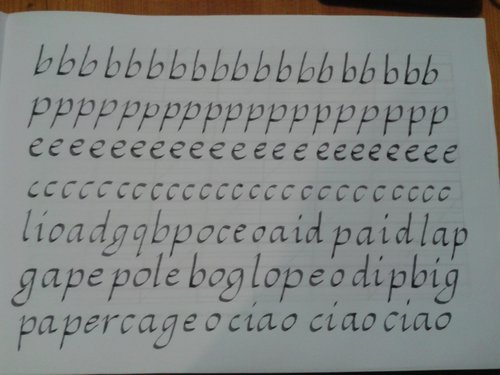 bbbbbbbbbbbbbbbbbbb
pppppppppppppppppppp
eeeeeeeeeeeeeeeeeeeeee
cccccccccccccccccccccccccc
lioadgqbpoceoaid paid lap
gape pole bog lope o dip big
paper cage o ciao ciao ciao